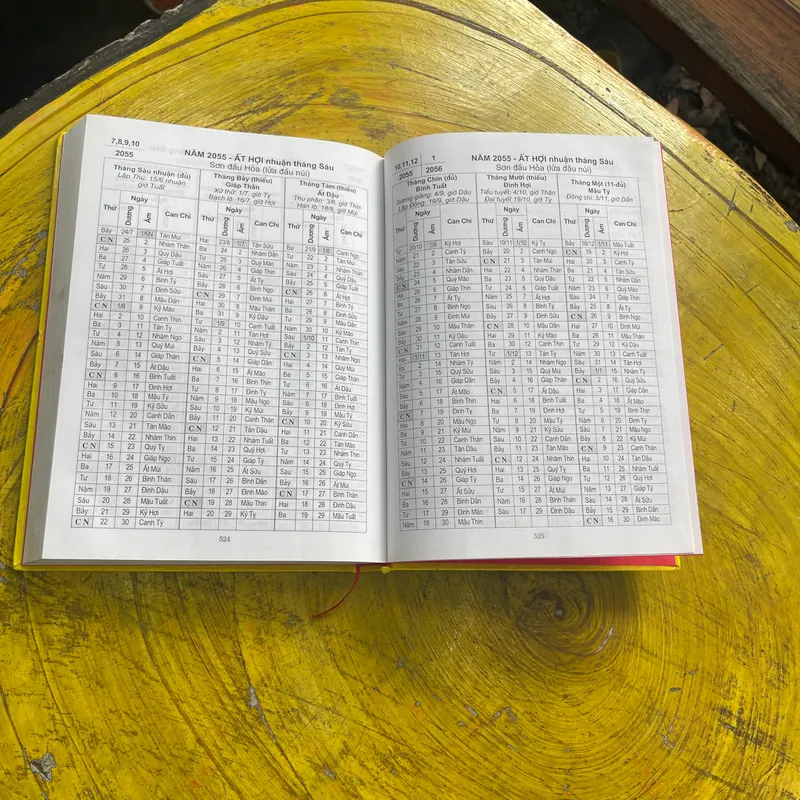 7,8,9,10
2055
NĂM 2055 - ẤT HỢI nhuận tháng Sáu
Sơn đầu Hỏa (lửa đầu núi)
Tháng Sáu nhuận (đủ)
Lập Thu: 15/6 nhuận
giờ Tuất
Thứ Ngày Can Chi
Dương Âm
Bảy 24/7 1/6N Tân Mùi
CN 25 2 Nhâm Thân
Hai 26 3 Quý Dậu
Ba 27 4 Giáp Tuất
Tư 28 5 Ất Hợi
Năm 29 6 Bính Tý
Sáu 30 7 Đinh Sửu
Bảy 31 8 Mậu Dần
CN 1/8 9 Kỷ Mão
Hai 2 10 Canh Thìn
Ba 3 11 Tân Tỵ
Tư 4 12 Nhâm Ngọ
Năm 5 13 Quý Mùi
Sáu 6 14 Giáp Thân
Bảy 7 15 Ất Dậu
CN 8 16 Bính Tuất
Hai 9 17 Đinh Hợi
Ba 10 18 Mậu Tý
Tư 11 19 Kỷ Sửu
Năm 12 20 Canh Dần
Sáu 13 21 Tân Mão
Bảy 14 22 Nhâm Thìn
CN 15 23 Quý Tỵ
Hai 16 24 Giáp Ngọ
Ba 17 25 Ất Mùi
Tư 18 26 Bính Thân
Năm 19 27 Đinh Dậu
Sáu 20 28 Mậu Tuất
Bảy 21 29 Kỷ Hợi
CN 22 30 Canh Tý
Tháng Bảy (thiếu)
Giáp Thân
Xử thử: 1/7, giờ Tỵ
Bạch lộ: 16/7, giờ Hợi
Thứ Ngày Can Chi
Dương Âm
Hai 23/8 1/7 Tân Sửu
Ba 24 2 Nhâm Dần
Tư 25 3 Quý Mão
Năm 26 4 Giáp Thìn
Sáu 27 5 Ất Tỵ
Bảy 28 6 Bính Ngọ
CN 29 7 Đinh Mùi
Hai 30 8 Mậu Thân
Ba 31 9 Kỷ Dậu
Tư 1/9 10 Canh Tuất
Năm 2 11 Tân Hợi
Sáu 3 12 Nhâm Tý
Bảy 4 13 Quý Sửu
CN 5 14 Giáp Dần
Hai 6 15 Ất Mão
Ba 7 16 Bính Thìn
Tư 8 17 Đinh Tỵ
Năm 9 18 Mậu Ngọ
Sáu 10 19 Kỷ Mùi
Bảy 11 20 Canh Thân
CN 12 21 Tân Dậu
Hai 13 22 Nhâm Tuất
Ba 14 23 Quý Hợi
Tư 15 24 Giáp Tý
Năm 16 25 Ất Sửu
Sáu 17 26 Bính Dần
Bảy 18 27 Đinh Mão
CN 19 28 Mậu Thìn
Hai 20 29 Kỷ Tỵ
Tháng Tám (thiếu)
Ất Dậu
Thu phân: 3/8, giờ Thìn
Hàn lộ: 18/8, giờ Mùi
Thứ Ngày Can Chi
Dương Âm
Ba 21/9 1/8 Canh Ngọ
Tư 22 2 Tân Mùi
Năm 23 3 Nhâm Thân
Sáu 24 4 Quý Dậu
Bảy 25 5 Giáp Tuất
CN 26 6 Ất Hợi
Hai 27 7 Bính Tý
Ba 28 8 Đinh Sửu
Tư 29 9 Mậu Dần
Năm 30 10 Kỷ Mão
Sáu 1/10 11 Canh Thìn
Bảy 2 12 Tân Tỵ
CN 3 13 Nhâm Ngọ
Hai 4 14 Quý Mùi
Ba 5 15 Giáp Thân
Tư 6 16 Ất Dậu
Năm 7 17 Bính Tuất
Sáu 8 18 Đinh Hợi
Bảy 9 19 Mậu Tý
CN 10 20 Kỷ Sửu
Hai 11 21 Canh Dần
Ba 12 22 Tân Mão
Tư 13 23 Nhâm Thìn
Năm 14 24 Quý Tỵ
Sáu 15 25 Giáp Ngọ
Bảy 16 26 Ất Mùi
CN 17 27 Bính Thân
Hai 18 28 Đinh Dậu
Ba 19 29 Mậu Tuất
524
10,11,12 1
2055 2056
NĂM 2055 - ẤT HỢI nhuận tháng Sáu
Sơn đầu Hỏa (lửa đầu núi)
Tháng Chín (đủ)
Bính Tuất
Sương giáng: 4/9, giờ Dậu
Lập Đông: 19/9, giờ Dậu
Thứ Ngày Can Chi
Dương Âm
Tư 20/10 1/9 Kỷ Hợi
Năm 21 2 Canh Tý
Sáu 22 3 Tân Sửu
Bảy 23 4 Nhâm Dần
CN 24 5 Quý Mão
Hai 25 6 Giáp Thìn
Ba 26 7 Ất Tỵ
Tư 27 8 Bính Ngọ
Năm 28 9 Đinh Mùi
Sáu 29 10 Mậu Thân
Bảy 30 11 Kỷ Dậu
CN 31 12 Canh Tuất
Hai 1/11 13 Tân Hợi
Ba 2 14 Nhâm Tý
Tư 3 15 Quý Sửu
Năm 4 16 Giáp Dần
Sáu 5 17 Ất Mão
Bảy 6 18 Bính Thìn
CN 7 19 Đinh Tỵ
Hai 8 20 Mậu Ngọ
Ba 9 21 Kỷ Mùi
Tư 10 22 Canh Thân
Năm 11 23 Tân Dậu
Sáu 12 24 Nhâm Tuất
Bảy 13 25 Quý Hợi
CN 14 26 Giáp Tý
Hai 15 27 Ất Sửu
Ba 16 28 Bính Dần
Tư 17 29 Đinh Mão
Năm 18 30 Mậu Thìn
Tháng Mười (thiếu)
Đinh Hợi
Tiểu tuyết: 4/10, giờ Thân
Đại tuyết 19/10, giờ Tỵ
Thứ Ngày Can Chi
Dương Âm
Sáu 19/11 1/10 Kỷ Tỵ
Bảy 20 2 Canh Ngọ
CN 21 3 Tân Mùi
Hai 22 4 Nhâm Thân
Ba 23 5 Quý Dậu
Tư 24 6 Giáp Tuất
Năm 25 7 Ất Hợi
Sáu 26 8 Bính Tý
Bảy 27 9 Đinh Sửu
CN 28 10 Mậu Dần
Hai 29 11 Kỷ Mão
Ba 30 12 Canh Thìn
Tư 1/12 13 Tân Tỵ
Năm 2 14 Nhâm Ngọ
Sáu 3 15 Quý Mùi
Bảy 4 16 Giáp Thân
CN 5 17 Ất Dậu
Hai 6 18 Bính Tuất
Ba 7 19 Đinh Hợi
Tư 8 20 Mậu Tý
Năm 9 21 Kỷ Sửu
Sáu 10 22 Canh Dần
Bảy 11 23 Tân Mão
CN 12 24 Nhâm Thìn
Hai 13 25 Quý Tỵ
Ba 14 26 Giáp Ngọ
Tư 15 27 Ất Mùi
Năm 16 28 Bính Thân
Sáu 17 29 Đinh Dậu
Tháng Một (11-đủ)
Mậu Tý
Đông chí: 5/11, giờ Dần
Thứ Ngày Can Chi
Dương Âm
Bảy 18/12 1/11 Mậu Tuất
CN 19 2 Kỷ Hợi
Hai 20 3 Canh Tý
Ba 21 4 Tân Sửu
Tư 22 5 Nhâm Dần
Năm 23 6 Quý Mão
Sáu 24 7 Giáp Thìn
Bảy 25 8 Ất Tỵ
CN 26 9 Bính Ngọ
Hai 27 10 Đinh Mùi
Ba 28 11 Mậu Thân
Tư 29 12 Kỷ Dậu
Năm 30 13 Canh Tuất
Sáu 31 14 Tân Hợi
Bảy 1/1 15 Nhâm Tý
CN 2 16 Quý Sửu
Hai 3 17 Giáp Dần
Ba 4 18 Ất Mão
Tư 5 19 Bính Thìn
Năm 6 20 Đinh Tỵ
Sáu 7 21 Mậu Ngọ
Bảy 8 22 Kỷ Mùi
CN 9 23 Canh Thân
Hai 10 24 Tân Dậu
Ba 11 25 Nhâm Tuất
Tư 12 26 Quý Hợi
Năm 13 27 Giáp Tý
Sáu 14 28 Ất Sửu
Bảy 15 29 Bính Dần
CN 16 30 Đinh Mão
525